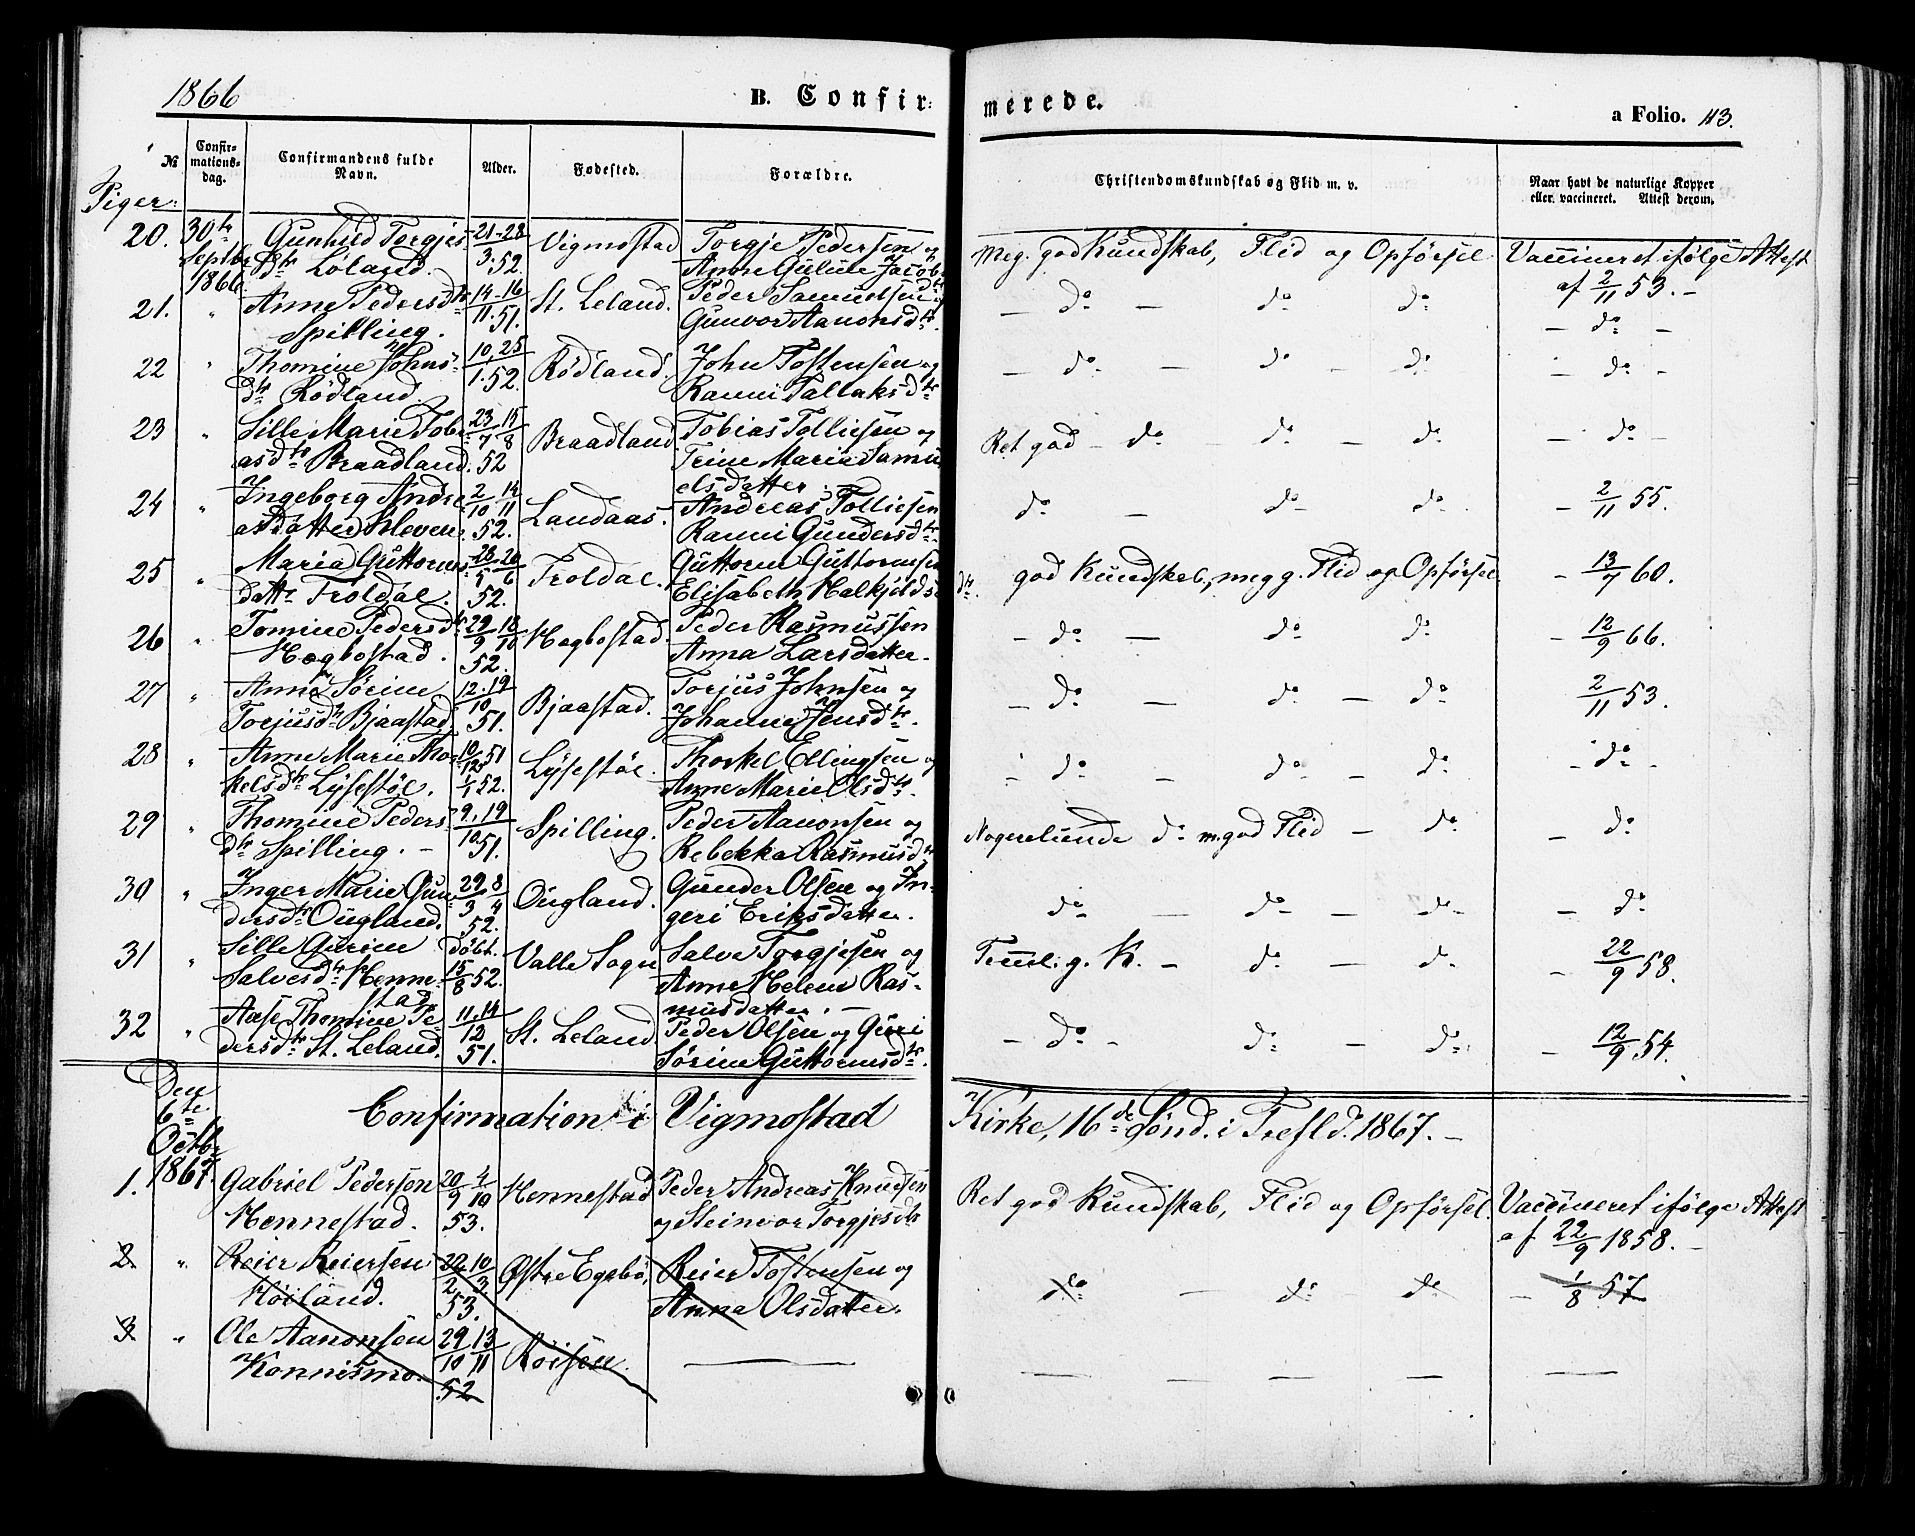 1866
B. Confir-
merede.
a Folio. 113.
№
Confir-
mations-
dag.
Confirmandens fulde
Navn.
Alder.
Fødested.
Forældre.
Christendomskundskab og Flid m. v.
Naar havt de naturlige Kopper
eller vaccineret. Attest derom.
Piger:
20. 30te Gunhild Torgjes- 21-28 Vigmostad Torgje Pedersen og Meg. god Kundskab, Flid og Opførsel Vaccineret ifølge Attest
Septbr dtr Løland. 3.52. Anne Guline Jacobs dtr af 2/11 53. -
1866
21. " Anne Pedersdtr 14-16 St. Leland. Peder Samuelsen og - do - do do - do -
Spilling. 11.51. Gunvor Aanonsdtr.
22 " Thomine Johns- 10,25 Rødland. John Tostensen og - do - do do - do -
dtr Rødland. 1.52. Ranni Tallaksdtr
23 " Sille Marie Tobi- 23 15 Braadland. Tobias Tolliesen og Ret god - do - do - do - do -
asdtr Braadland. 7 8 52 Trine Marie Samu-
elsdatter.
24 " Ingeborg Andre- 2 14 Landaas. Andreas Tolliesen do - do do - 2/11 55.
asdatter Kleven. 10 11 52. Ranni Gundersdtr.
25 " Maria Guttorms- 26-20 Troldal. Guttorm Guttormsen god Kundskab, meg g. Flid og Opførsel - 13/7 60.
datt. Troldal. 5 6 52. Elisabeth Halkjelds dtr.
26 " Tomine Pedersdtr 29 18 Høgbostad. Peder Rasmussen - do - do do - 12/9 66.
Høgbostad. 9 10 52. Anna Larsdatter.
27 " Anne Sørine 12.19 Bjaastad. Torjus Johnsen og - do - do - do 2/11 53.
Torjusdtr Bjaastad. 10 51. Johanne Jensdtr.
28 " Anne Marie Tho- 10/12 51 Lysestøl. Thorkel Ellingsen og - do - do - do - do -
kelsdtr Lysestøl. 1/1 52. Anne Marie Olsdtr.
29 " Thomine Peders- 9.19 Spilling. Peder Aanonsen og Nogenlunde do m. god Flid - do - do
dtr Spilling. - 10 51. Rebekka Rasmusdtr
30 " Inger Marie Gun- 29 8 Øugland. Gunder Olsen og In- do - do - do - - do
dersdtr Øugland. 3 4 52. geri Eriksdatter.
31 " Sille Gurine Døbt. Valle Sogn Salve Torgjesen og Teml. g. K. - do - do - 22/9 58.
Salvesdtr Henne- 15/8 52. Anne Helene Ras-
stad musdatter. -
32 " Aase Thomine Pe- 11.14 St. Leland Peder Olsen og Guri - do - do - do - 12/9 54.
dersdtr St. Leland. 12 51. Sørine Guttormsdtr.
Den
6te
Octbr
1867.
Confirmation i Vigmostad Kirke, 16de Sønd. i Trefld. 1867. -
1. Gabriel Pedersen 20 4 Hennestad Peder Andreas Knudsen Ret god Kundskab, Flid og Opførsel. Vaccineret ifølge Attest
Hennestad. 9 10 53. og Steinvor Torgjesdtr af 22/9 1858. -
2. " Reier Reiersen 22 10 Østre Egebø, Reier Tostensen og do - do - do - 1/8 57
Høiland. 2 3 53. Anna Olsdatter.
3 " Ole Aanonsen 29 13 Røisen.
Konnismo. 10 11 52